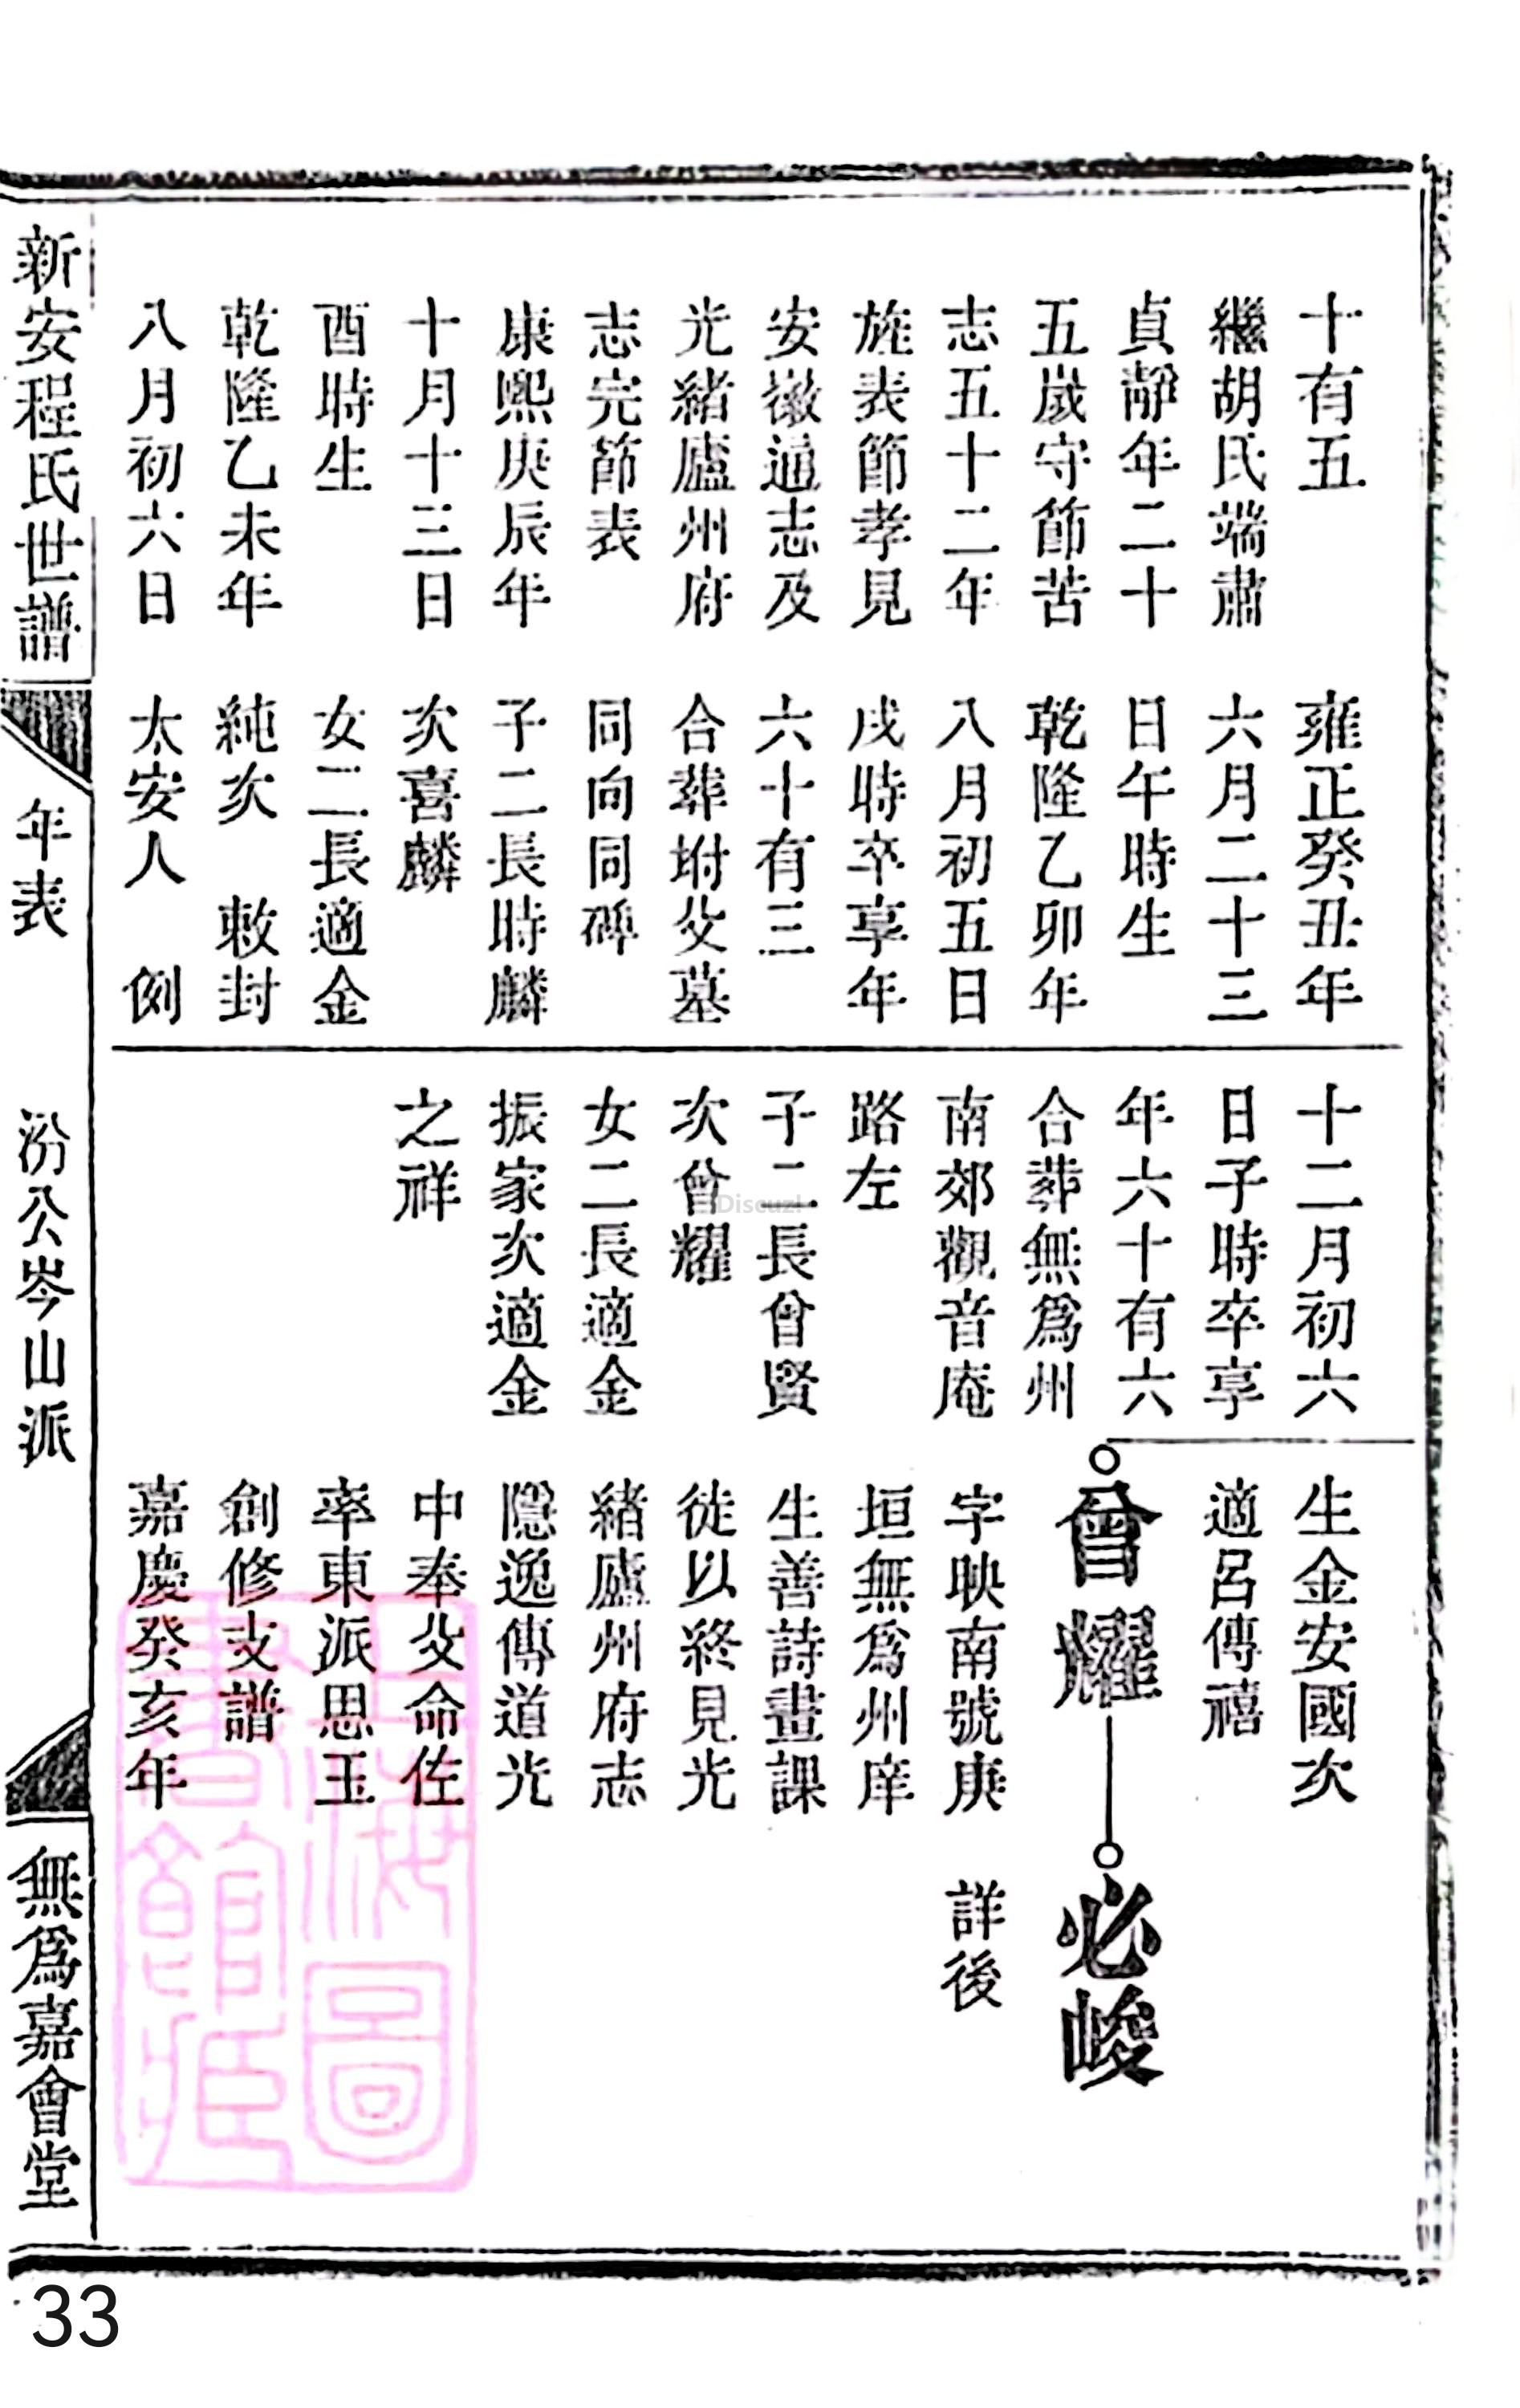 十有五
繼胡氏端肅
貞靜年二十
五歲守節苦
志五十二年
旌表節孝見
安徽通志及
光緒廬州府
志完節表
康熙庚辰年
十月十三日
酉時生
乾隆乙未年
八月初六日
雍正癸丑年
六月二十三
日午時生
乾隆乙卯年
八月初五日
戌時卒享年
六十有三
合葬坿父墓
同向同碑
子二長時麟
次喜麟
女二長適金
純次 敕封
太安人 例
十二月初六
日子時卒享
年六十有六
合葬無為州
南郊觀音庵
路左
子二長曾賢
次曾耀
女二長適金
振家次適金
之祥
生金安國次
適呂傳禧
曾耀
字映南號庚
垣無為州庠
生善詩畫課
徒以終見光
緒廬州府志
隱逸傳道光
中奉父命佐
率東派思玉
創修支譜
嘉慶癸亥年
必峻
詳後
新安程氏世譜
年表
汾公岑山派
無為嘉會堂
上海圖書館藏
Discuz!
33